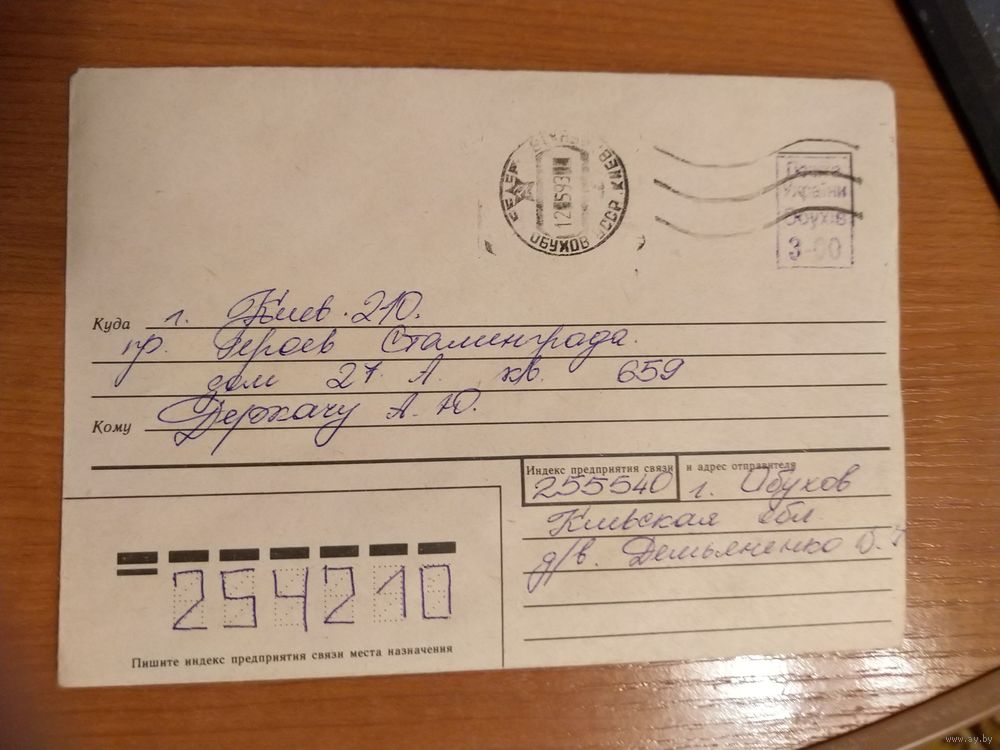 12 5 93
ОБУХОВ
КИЕВ
ССР
Пошта
України
Обухів
3-00
Куда г. Киев. 210.
пр. Героев Сталинграда.
дом 27 А. кв. 659
Кому Держачу А. Ю.
Индекс предприятия связи и адрес отправителя
255540 г. Обухов
Киевская обл
д/в. Демьяненко
254210
Пишите индекс предприятия связи места назначения
www.ay.by